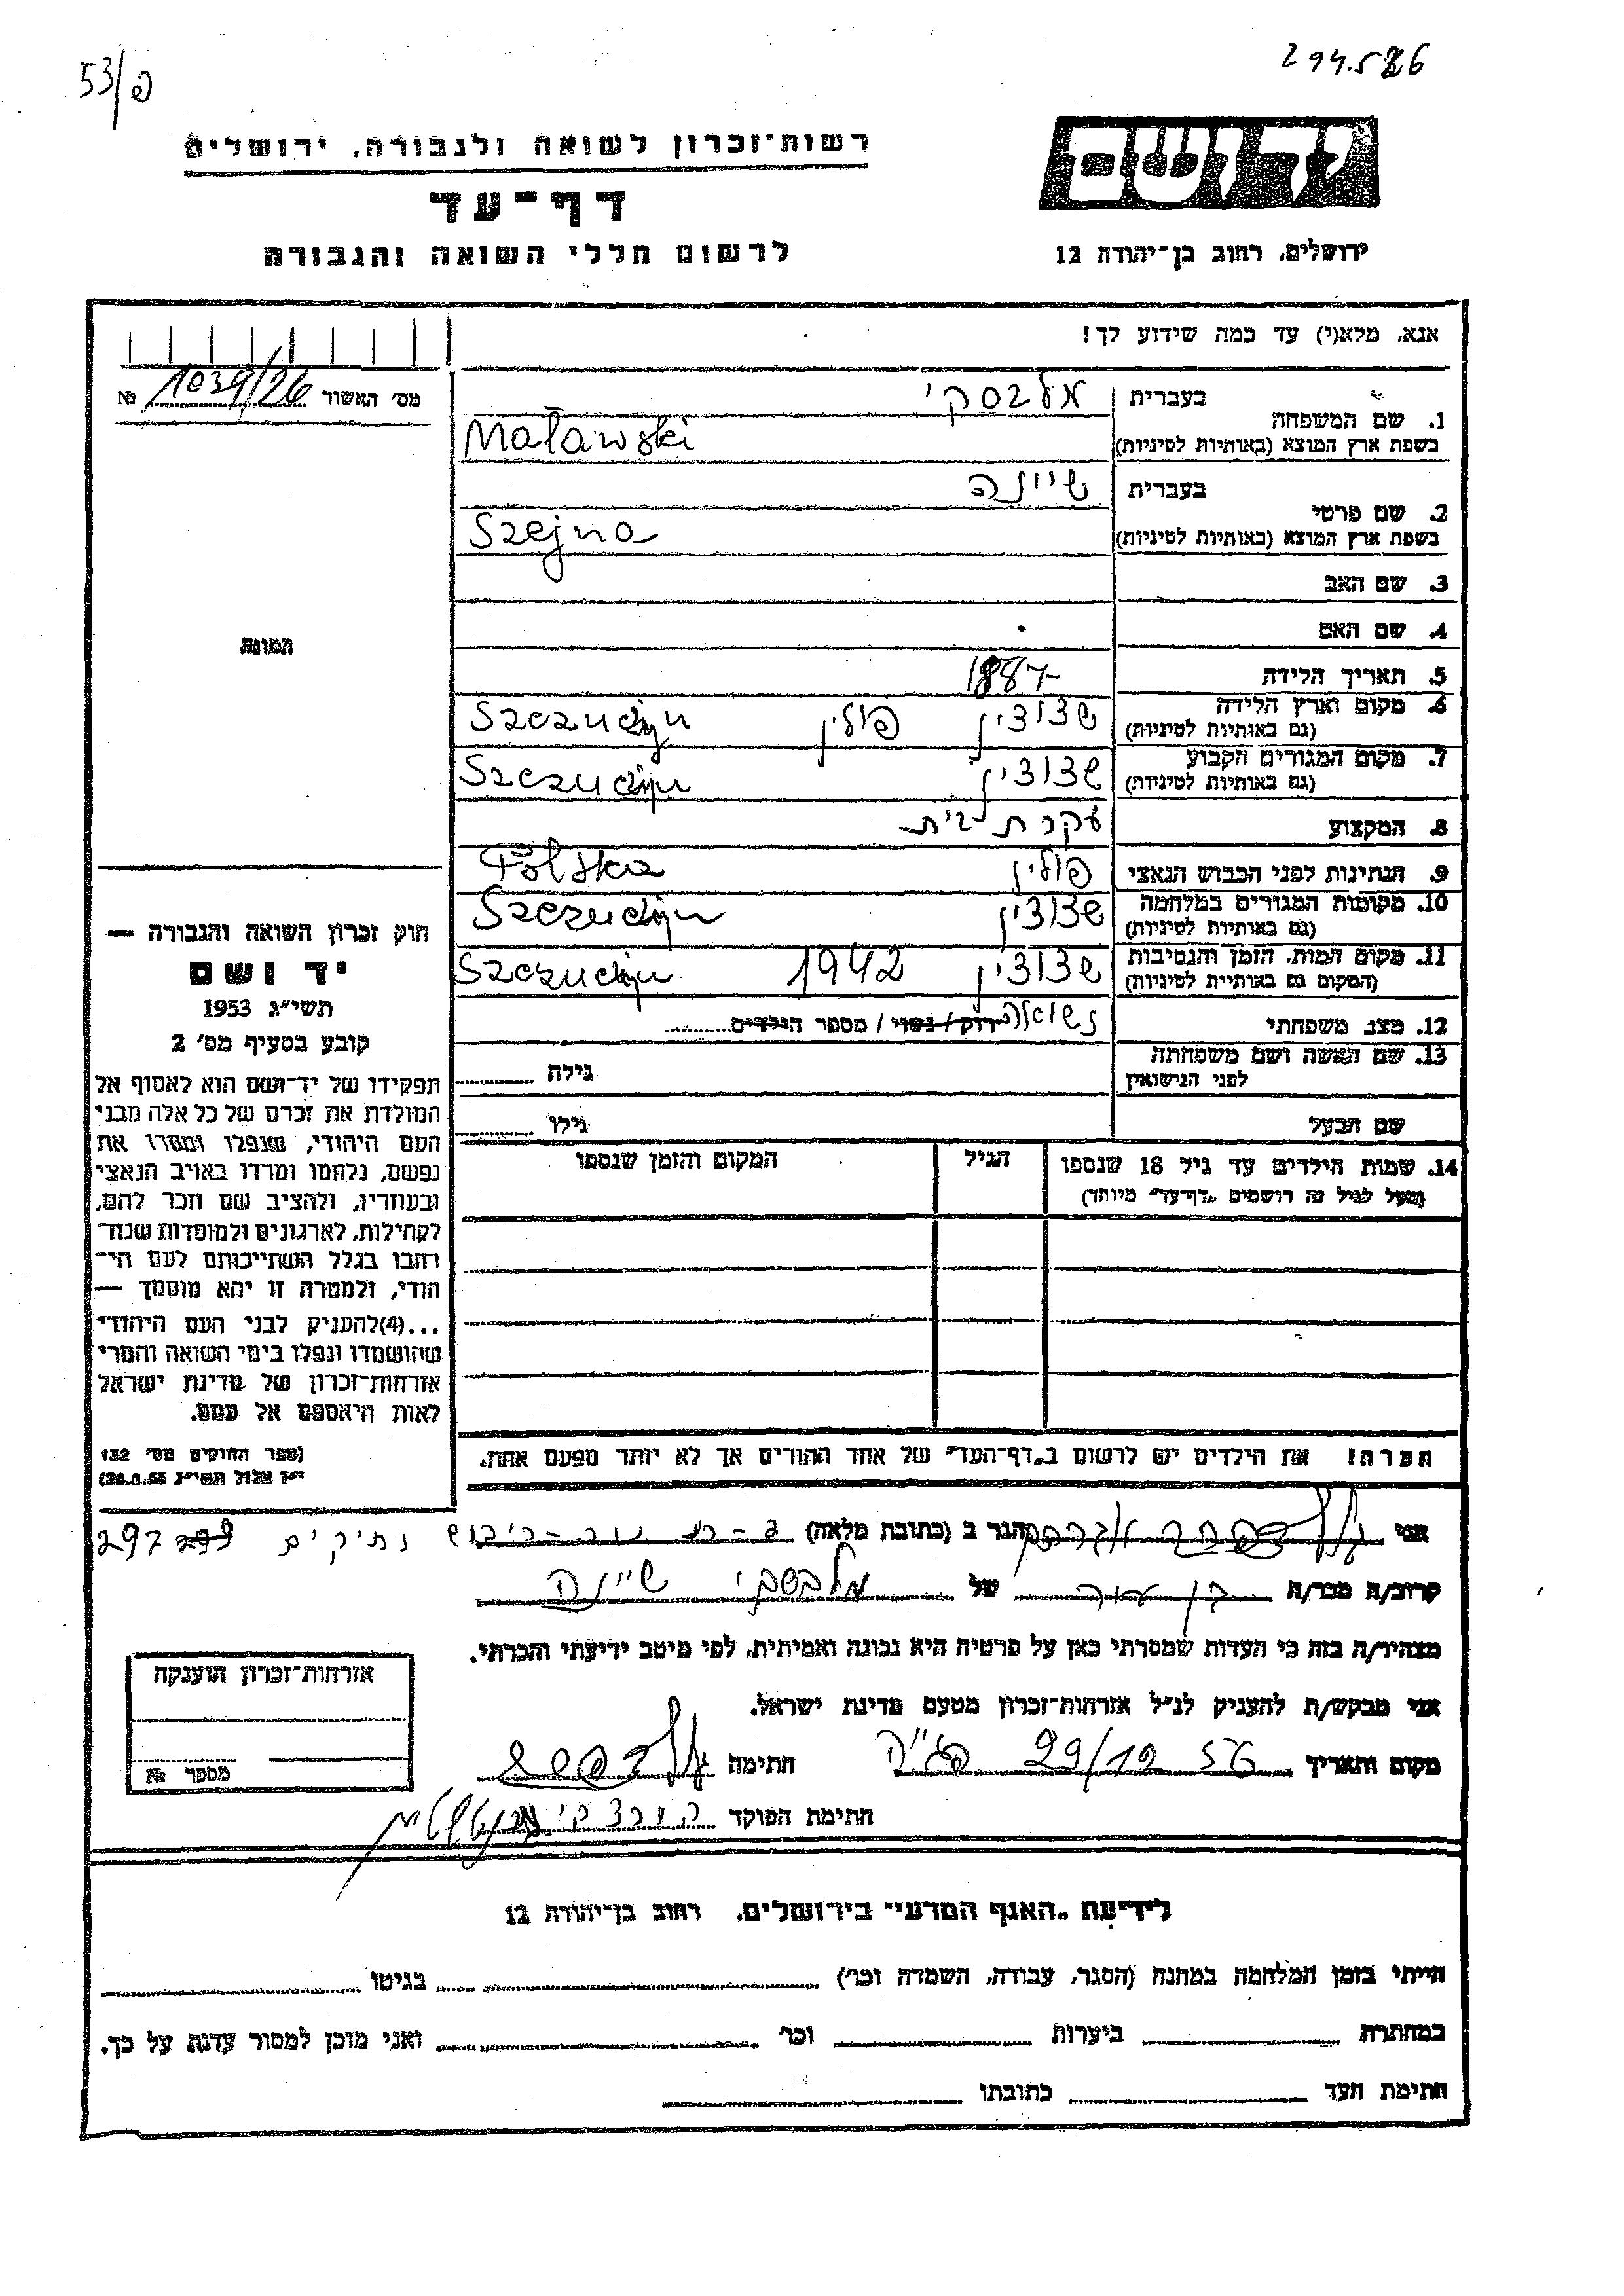 53/פ
294.526
רשות־זכרון לשואה ולגבורה, ירושלים
דף־עד
לרשום חללי השואה והגבורה
יד ושם
ירושלים, רחוב בן־יהודה 12
אנא, מלא(י) עד כמה שידוע לך!
מס' האשור 1039/26 №
תמונה
1. שם המשפחה
בעברית מלבסקי
בשפת ארץ המוצא (באותיות לטיניות) Maławski
2. שם פרטי
בעברית שיינה
בשפת ארץ המוצא (באותיות לטיניות) Szejna
3. שם האב
4. שם האם
5. תאריך הלידה 1887
6. מקום וארץ הלידה שצוצין פולין Szczuczyn
(גם באותיות לטיניות)
7. מקום המגורים הקבוע שצוצין Szczuczyn
(גם באותיות לטיניות)
8. המקצוע עקרת בית
9. הנתינות לפני הכבוש הנאצי פולין Polska
10. מקומות המגורים במלחמה שצוצין Szczuczyn
(גם באותיות לטיניות)
11. מקום המות, הזמן והנסיבות שצוצין 1942 Szczuczyn
(המקום גם באותיות לטיניות)
12. מצב משפחתי נשואה רוק / נשוי / מספר הילדים
13. שם האשה ושם משפחתה גילה
לפני הנישואין
שם הבעל גילו
14. שמות הילדים עד גיל 18 שנספו הגיל המקום והזמן שנספו
(מעל לגיל זה רושמים "דף־עד" מיוחד)
חוק זכרון השואה והגבורה —
יד ושם
תשי"ג 1953
קובע בסעיף מס' 2
תפקידו של יד־ושם הוא לאסוף אל
המולדת את זכרם של כל אלה מבני
העם היהודי, שנפלו ומסרו את
נפשם, נלחמו ומרדו באויב הנאצי
ובעוזריו, ולהציב שם וזכר להם,
לקהילות, לארגונים ולמוסדות שנח־
רבו בגלל השתייכותם לעם הי־
הודי, ולמטרה זו יהא מוסמך —
...(4)להעניק לבני העם היהודי
שהושמדו ונפלו בימי השואה והמרי
אזרחות־זכרון של מדינת ישראל
לאות היאספם אל עמם.
(ספר החוקים מס' 132
י"ז אלול תשי"ג 28.8.53)
הערה! את הילדים יש לרשום ב"דף־העד" של אחד ההורים אך לא יותר מפעם אחת.
אני הגר ב (כתובת מלאה) ותיקים 297
קרוב/ה מכר/ה בן דוד של מלבסקי שיינה
מצהיר/ה בזה כי העדות שמסרתי כאן על פרטיה היא נכונה ואמיתית, לפי מיטב ידיעתי והכרתי.
אני מבקש/ת להעניק לנ"ל אזרחות־זכרון מטעם מדינת ישראל.
מקום ותאריך 29/12 56 חתימה
חתימת הפוקד
אזרחות־זכרון הוענקה
מספר №
לידיעת "האגף המדעי" בירושלים, רחוב בן־יהודה 12
הייתי בזמן המלחמה במחנה (הסגר, עבודה, השמדה וכו') בגיטו
במחתרת ביערות וכו' ואני מוכן למסור עדות על כך.
חתימת העד כתובתו